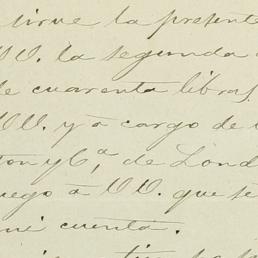 sirve la present
VV. la segunda
de cuarenta libras
VV. y a cargo de
ton y Cª, de Lond
uego à VV. que se
mi cuenta.